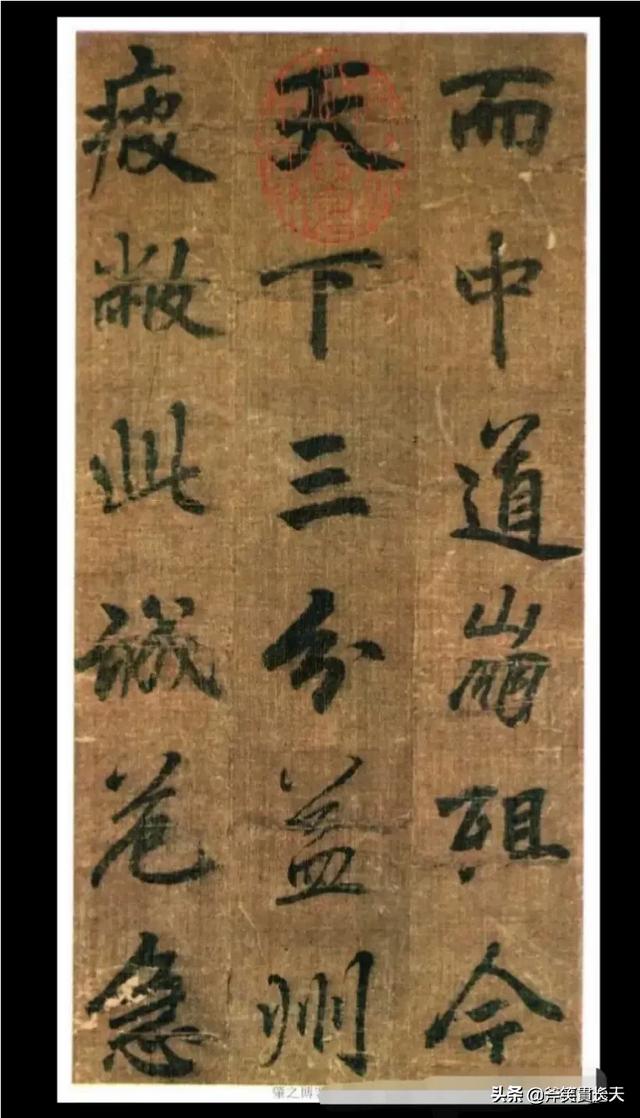 而中道崩殂今
天下三分益州
疲敝此誠危急
頭条 @斧笑貫长天